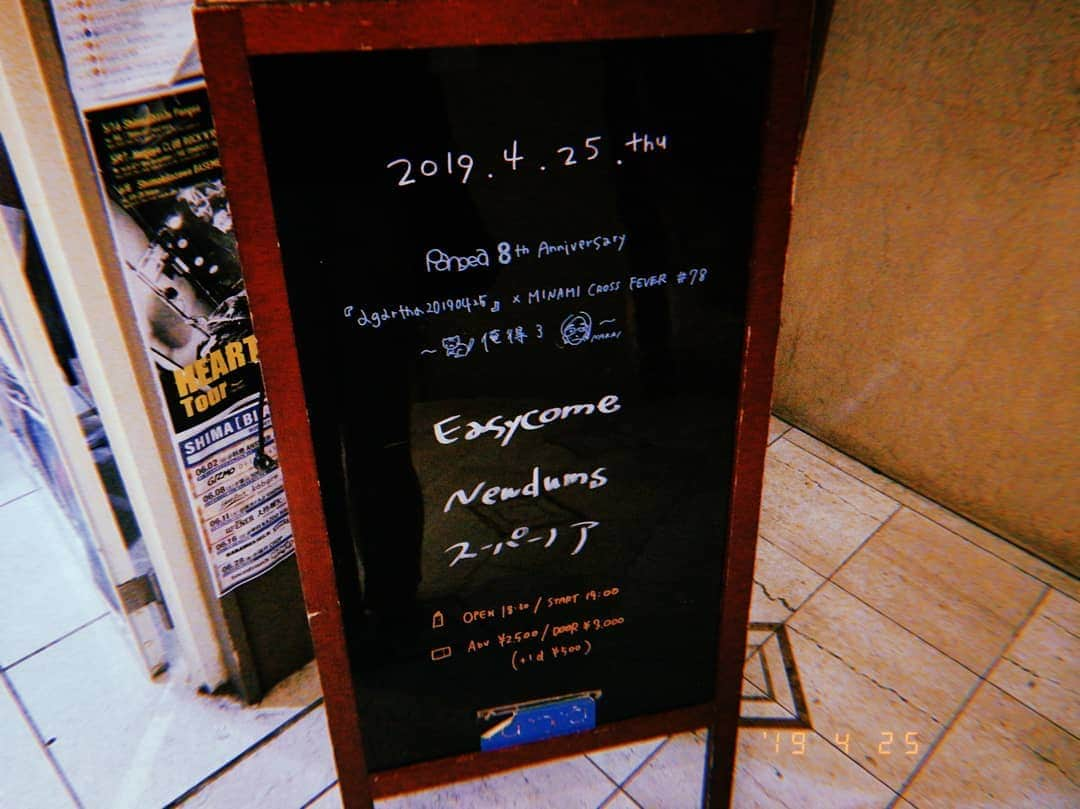 2019.4.25.thu
Pangea 8th Anniversary
『agartha20190425』 × MINAMI CROSS FEVER #78
~ 俺得3 ~
Easycome
Newdums
スーパーノア
OPEN 18:30 / START 19:00
ADV ¥2,500 / DOOR ¥3,000
(+1d ¥500)
HEART
Tour
SHIMA [BLA
06.02
GIZMO
06.08
06.11
06.16
06.28
'19 4 25